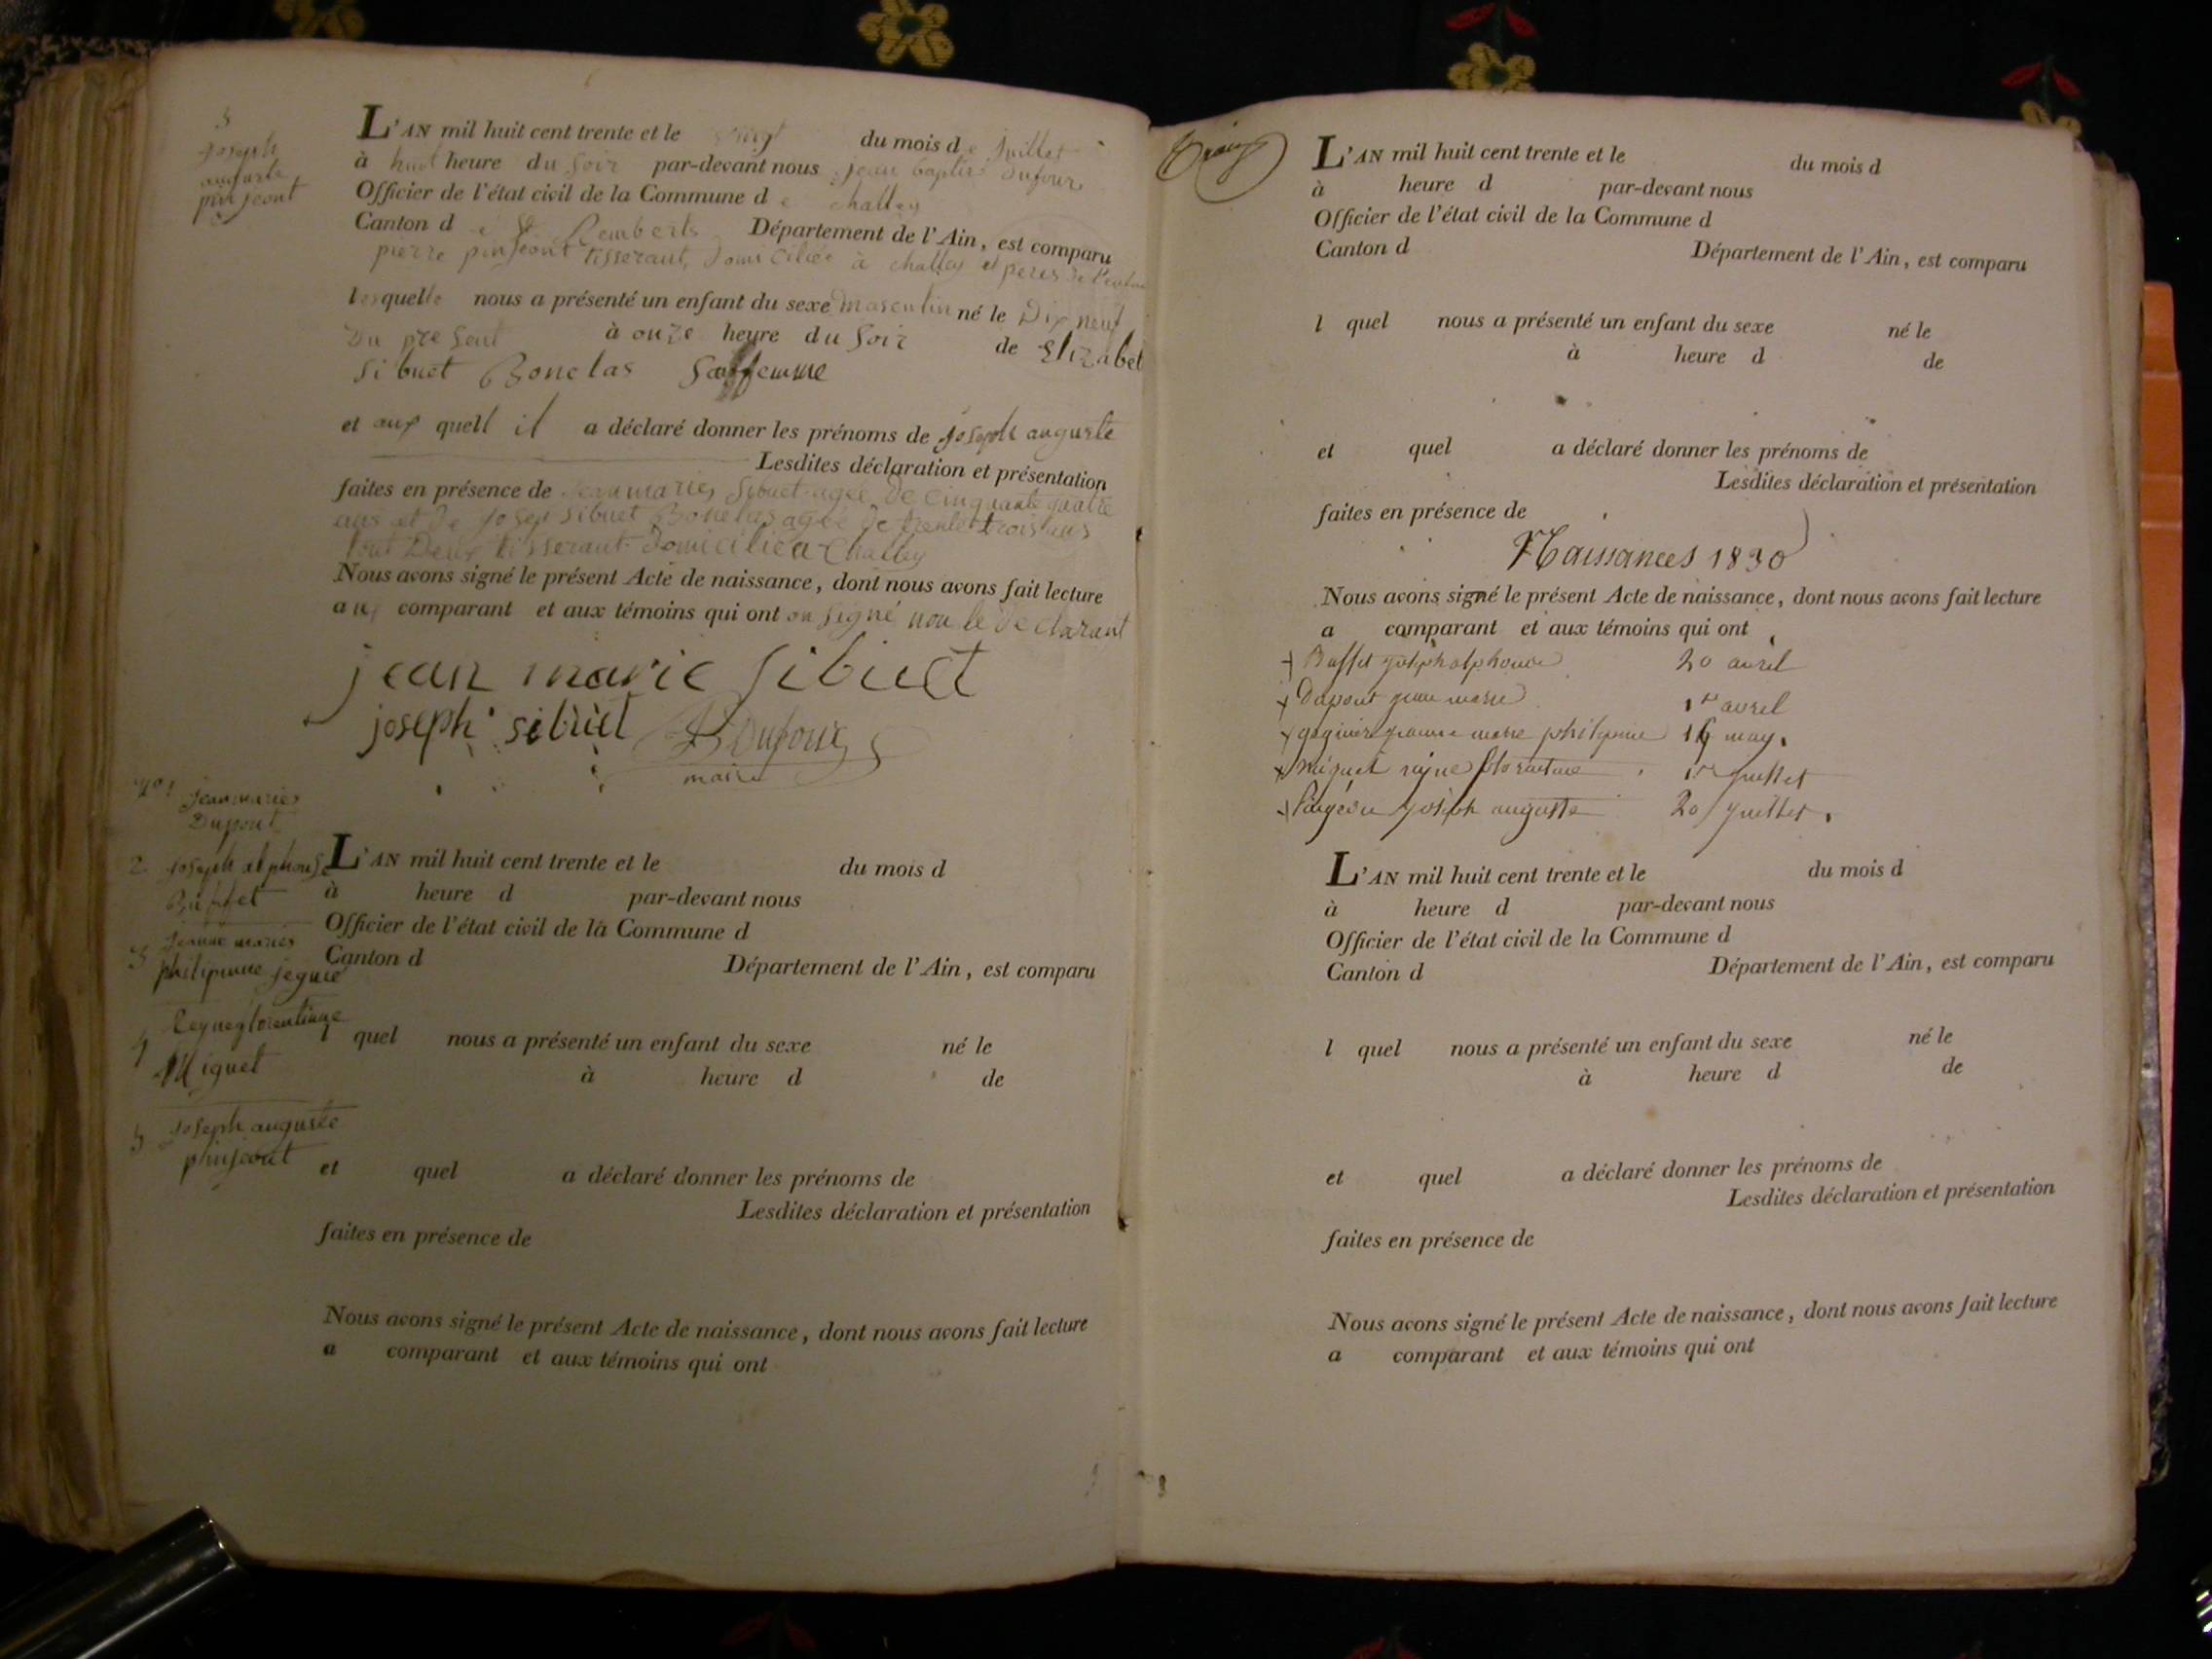 5
joseph
auguste
pinjeont
L'AN mil huit cent trente et le vingt du mois de juillet
à huit heure du soir par-devant nous jean baptiste dufour
Officier de l'état civil de la Commune de challey
Canton de St Remberts Département de l'Ain, est comparu
pierre pinjeont tisserant, domiciliée à challey et peres de l'enfan
lesquelle nous a présenté un enfant du sexe masculin né le Dix neuf
Du present à onze heure du soir de Elizabet
Sibuet Bonclas Sa femme
et aux quell il a déclaré donner les prénoms de joseph auguste
Lesdites déclaration et présentation
faites en présence de jeanmaries Sibuet agée de cinquante quatre
ans et de josep Sibuet Bonclas agée de trente trois ans
tout Deux tisserant domicilié a Challey
Nous avons signé le présent Acte de naissance, dont nous avons fait lecture
aux comparant et aux témoins qui ont on signé non le declarant
jean marie sibuet
joseph sibuet Dufour
maire
jeanmaries
Dupont
2 joseph alphonse
Buffet
3 jeanne maries
philipinne jeguié
4 Reyne florentinne
Miguet
5 joseph auguste
phinjeont
L'AN mil huit cent trente et le du mois d
à heure d par-devant nous
Officier de l'état civil de la Commune d
Canton d Département de l'Ain, est comparu
l quel nous a présenté un enfant du sexe né le
à heure d de
et quel a déclaré donner les prénoms de
Lesdites déclaration et présentation
faites en présence de
Nous avons signé le présent Acte de naissance, dont nous avons fait lecture
a comparant et aux témoins qui ont
L'AN mil huit cent trente et le du mois d
à heure d par-devant nous
Officier de l'état civil de la Commune d
Canton d Département de l'Ain, est comparu
l quel nous a présenté un enfant du sexe né le
à heure d de
et quel a déclaré donner les prénoms de
Lesdites déclaration et présentation
faites en présence de
Naissances 1830
Nous avons signé le présent Acte de naissance, dont nous avons fait lecture
a comparant et aux témoins qui ont
+ Buffet joseph alphonse 20 avril
+ Dupont jean marie 1er avril
+ jeanne marie philipine 16 may.
+ Miguet reyne florentine 1er juillet
+ joseph auguste 20 juillet.
L'AN mil huit cent trente et le du mois d
à heure d par-devant nous
Officier de l'état civil de la Commune d
Canton d Département de l'Ain, est comparu
l quel nous a présenté un enfant du sexe né le
à heure d de
et quel a déclaré donner les prénoms de
Lesdites déclaration et présentation
faites en présence de
Nous avons signé le présent Acte de naissance, dont nous avons fait lecture
a comparant et aux témoins qui ont